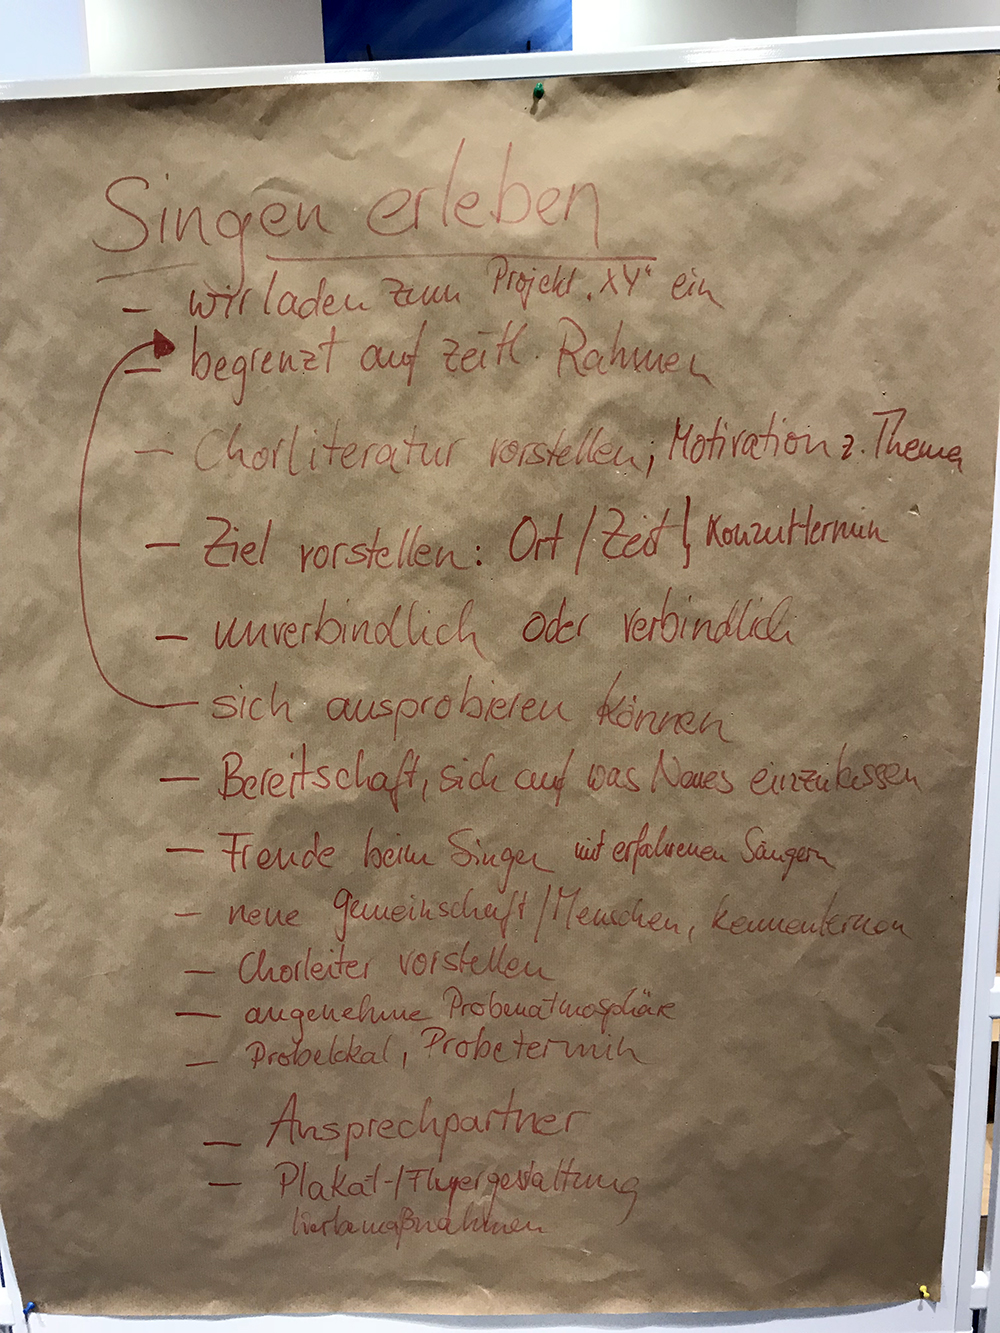 Singen erleben
– wir laden zum Projekt „XY" ein
– begrenzt auf zeitl. Rahmen
– Chorliteratur vorstellen; Motivation z. Thema
– Ziel vorstellen: Ort / Zeit / Konzerttermin
– unverbindlich oder verbindlich
– sich ausprobieren können
– Bereitschaft, sich auf was Neues einzulassen
– Freude beim Singen mit erfahrenen Sängern
– neue Gemeinschaft / Menschen, kennenlernen
– Chorleiter vorstellen
– angenehme Probenatmosphäre
– Probelokal, Probetermin
– Ansprechpartner
– Plakat-/Flyergestaltung
Werbemaßnahmen